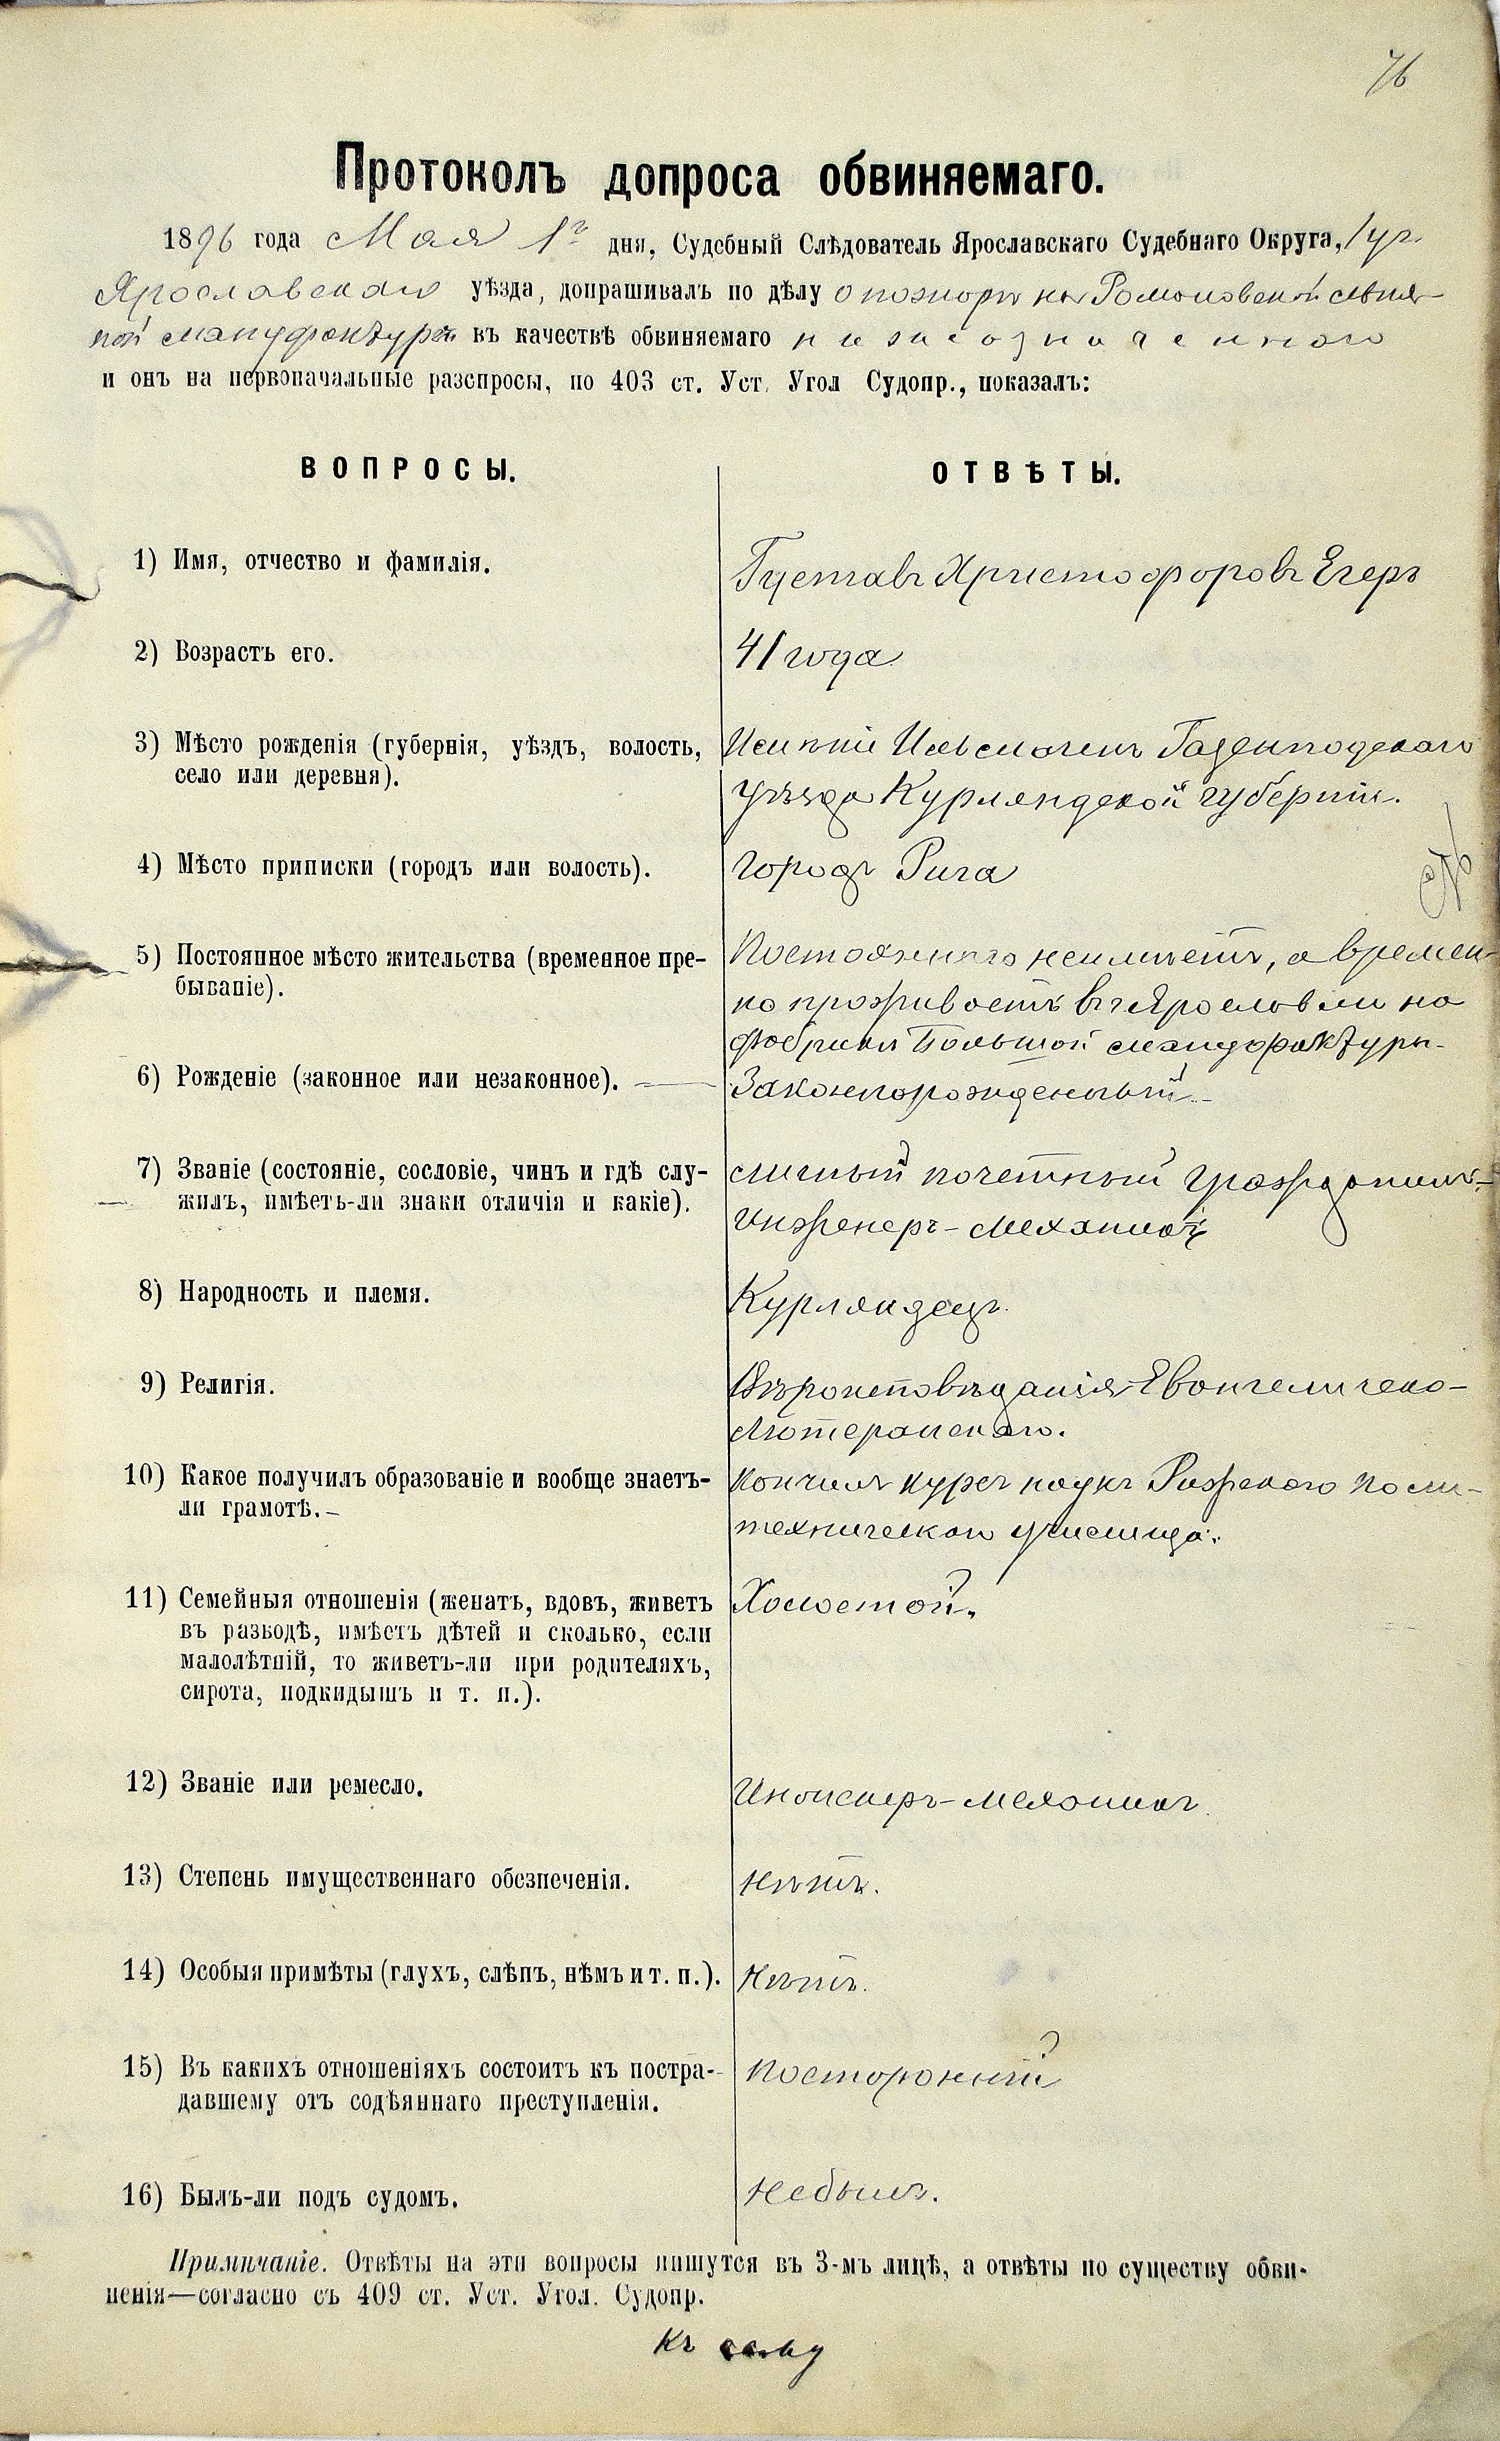 76
Протоколъ допроса обвиняемаго.
1896 года Мая 1го дня, Судебный Слѣдователь Ярославскаго Судебнаго Округа, 1 уч.
Ярославскаго уѣзда, допрашивалъ по дѣлу о пожарѣ на Романовской льня-
ной мануфактурѣ въ качествѣ обвиняемаго нижеозначеннаго
и онъ на первоначальные разспросы, по 403 ст. Уст. Угол Судопр., показалъ:
ВОПРОСЫ.
ОТВѢТЫ.
1) Имя, отчество и фамилія.
Густавъ Христофоровъ Егеръ
2) Возрастъ его.
41 года
3) Мѣсто рожденія (губернія, уѣздъ, волость,
село или деревня).
Имѣніи Ильмагенъ Газенподскаго
уѣзда Курляндской губерніи.
4) Мѣсто приписки (городъ или волость).
городъ Рига
5) Постоянное мѣсто жительства (временное пре-
бываніе).
Постояннаго неимѣетъ, а времен-
но проживаетъ въ г Ярославли на
фабрикѣ Большой мануфактуры.
6) Рожденіе (законное или незаконное).
Законнорожденный.
7) Званіе (состояніе, сословіе, чинъ и гдѣ слу-
жилъ, имѣетъ-ли знаки отличія и какіе).
личный почетный гражданинъ-
Инженеръ-механикъ
8) Народность и племя.
Курляндецъ.
9) Религія.
Вѣроисповѣданія Евангелическо-
Лютеранскаго.
10) Какое получилъ образованіе и вообще знаетъ-
ли грамотѣ.
Кончилъ курсъ наукъ Рижскаго поли-
техническаго училища.
11) Семейныя отношенія (женатъ, вдовъ, живетъ
въ разводѣ, имѣетъ дѣтей и сколько, если
малолѣтній, то живетъ-ли при родителяхъ,
сирота, подкидышъ и т. п.).
Холостой.
12) Званіе или ремесло.
Инженеръ-механикъ.
13) Степень имущественнаго обезпеченія.
Нѣтъ.
14) Особыя примѣты (глухъ, слѣпъ, нѣмъ и т. п.).
Нѣтъ.
15) Въ какихъ отношеніяхъ состоитъ къ постра-
давшему отъ содѣяннаго преступленія.
Посторонній
16) Былъ-ли подъ судомъ.
Небылъ.
Примѣчаніе. Отвѣты на эти вопросы пишутся въ 3-мъ лицѣ, а отвѣты по существу обви-
ненія—согласно съ 409 ст. Уст. Угол. Судопр.
Къ